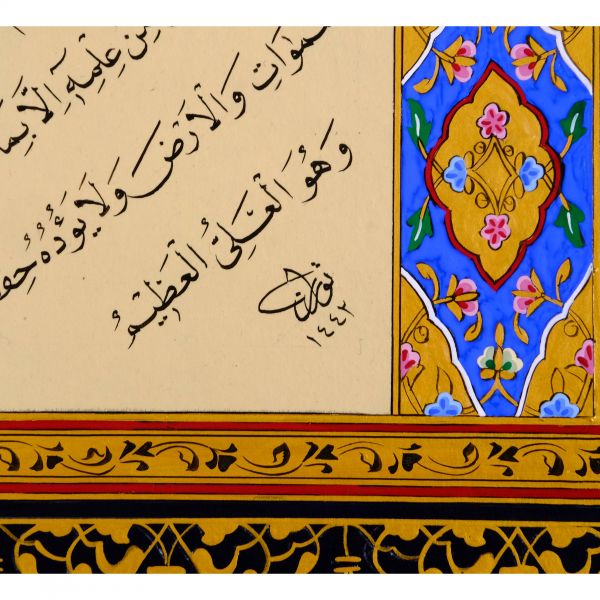 مِن عِلْمِهِ إِلَّا بِمَا
وَالْأَرْضَ وَلَا يَؤُدُهُ حِفْ
وَهُوَ الْعَلِيُّ الْعَظِيمُ
١٤٤٢